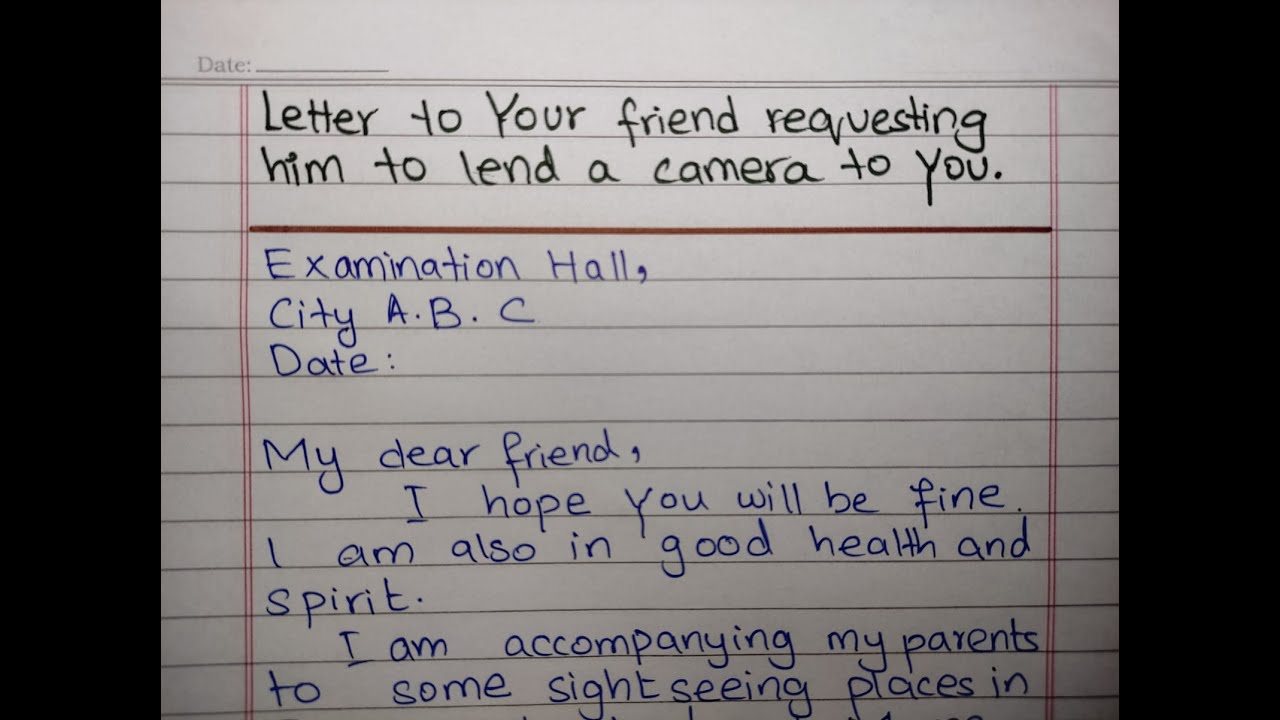 Date:
Letter to Your friend requesting
him to lend a camera to you.
Examination Hall,
City A.B.C
Date:
My dear friend,
I hope you will be fine.
I am also in good health and
spirit.
I am accompanying my parents
to some sightseeing places in